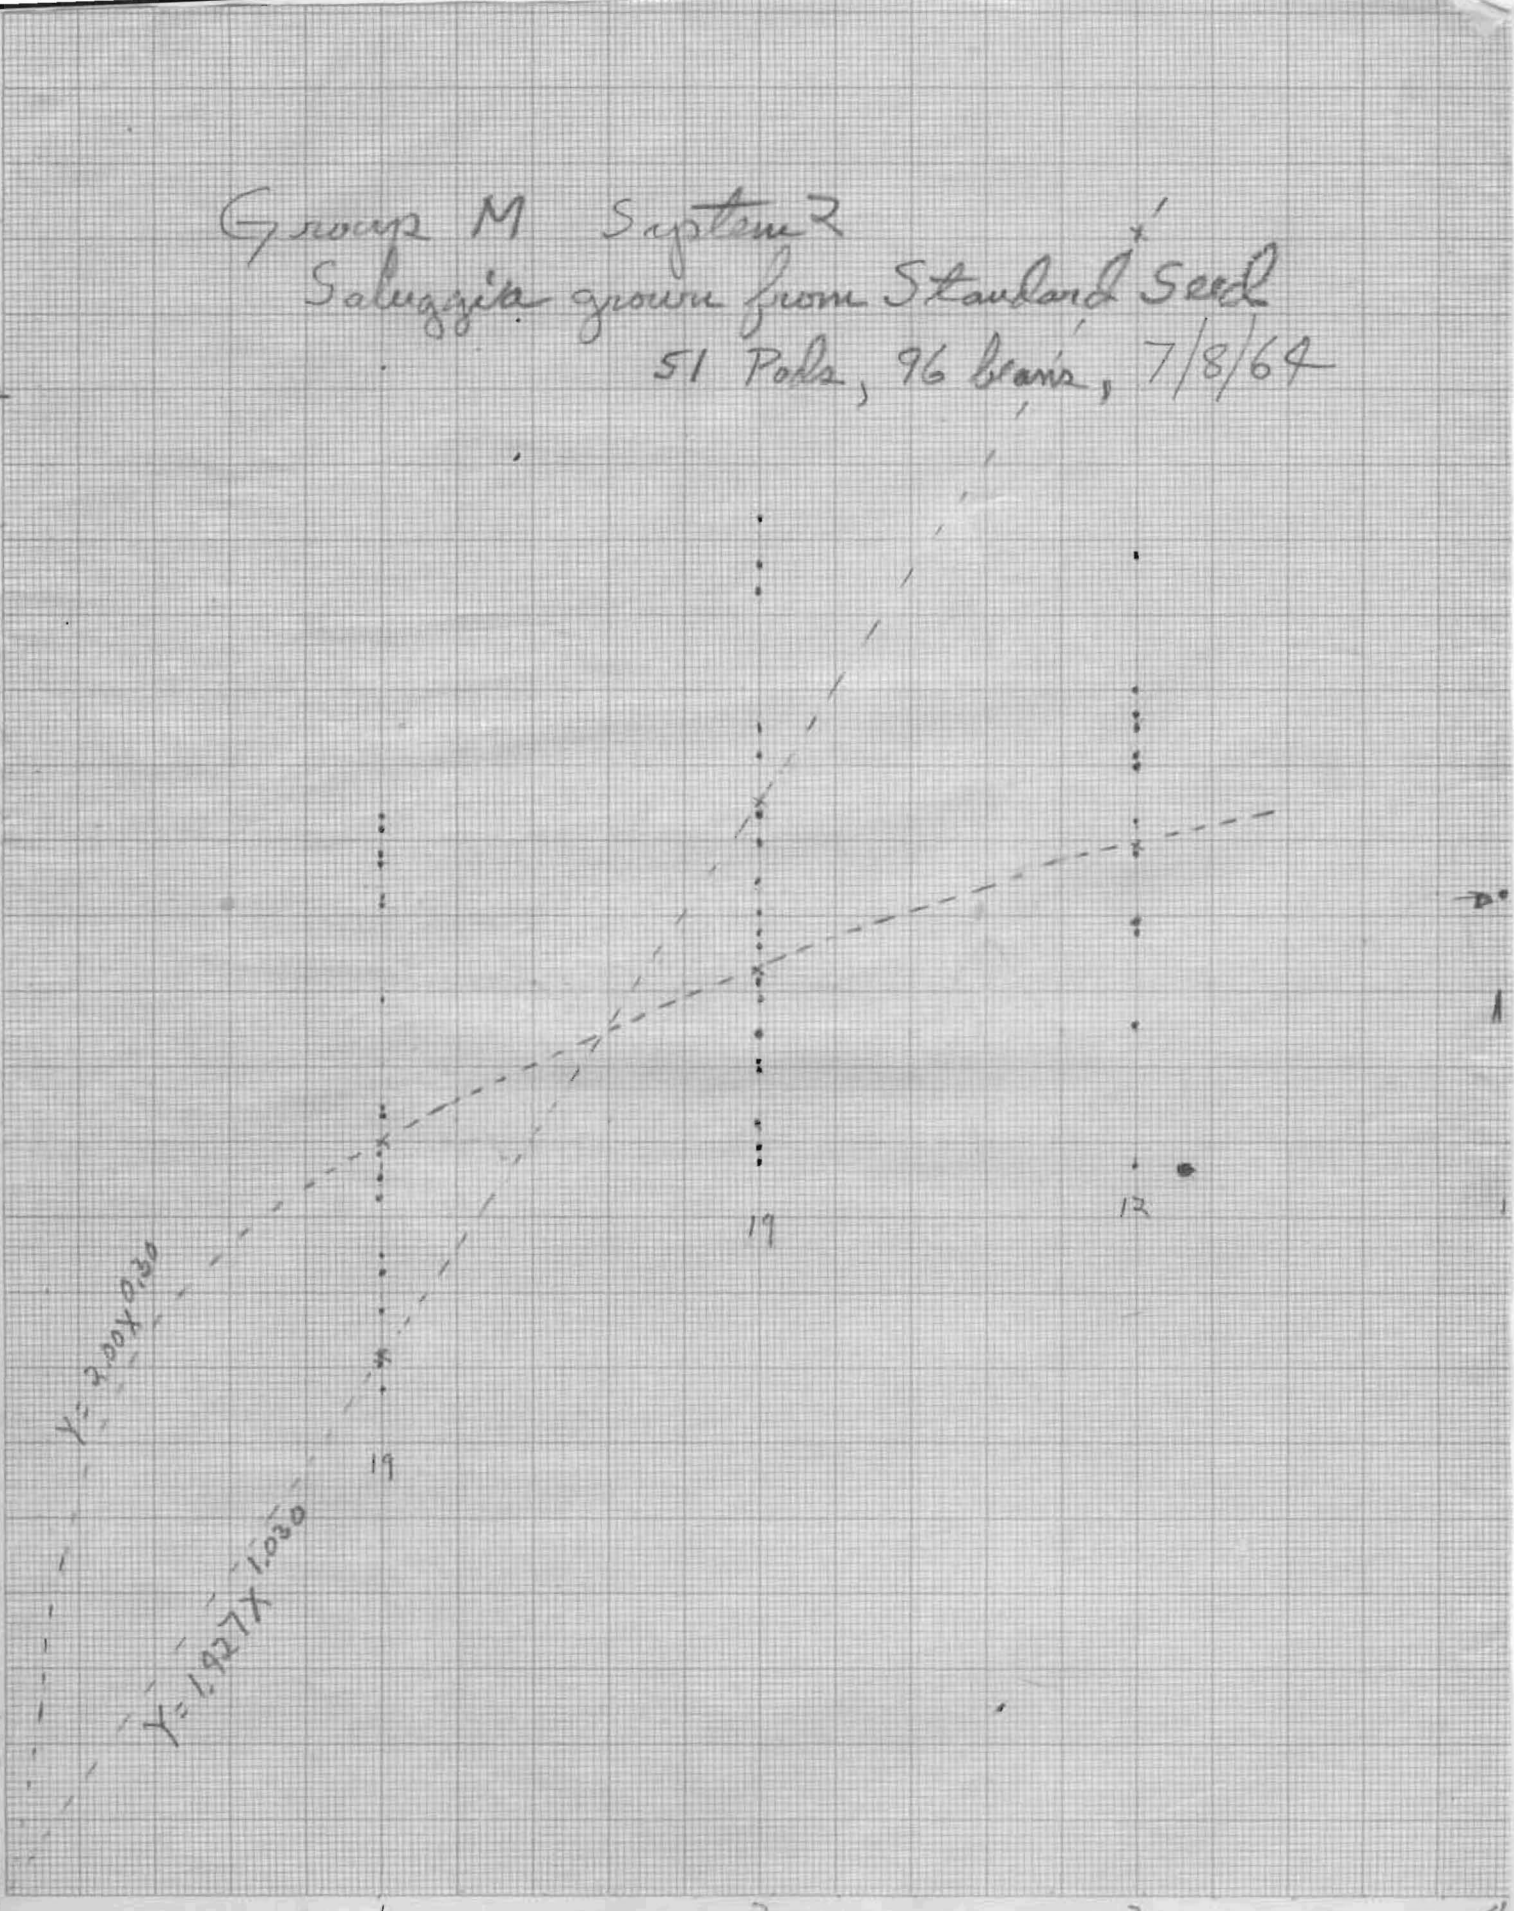 Group M System 2
Saluggia grown from Standard Seed
51 Pods, 96 beans, 7/8/64
19
12
Y=2.00X^0.30
19
Y=1.927X^1.030
1